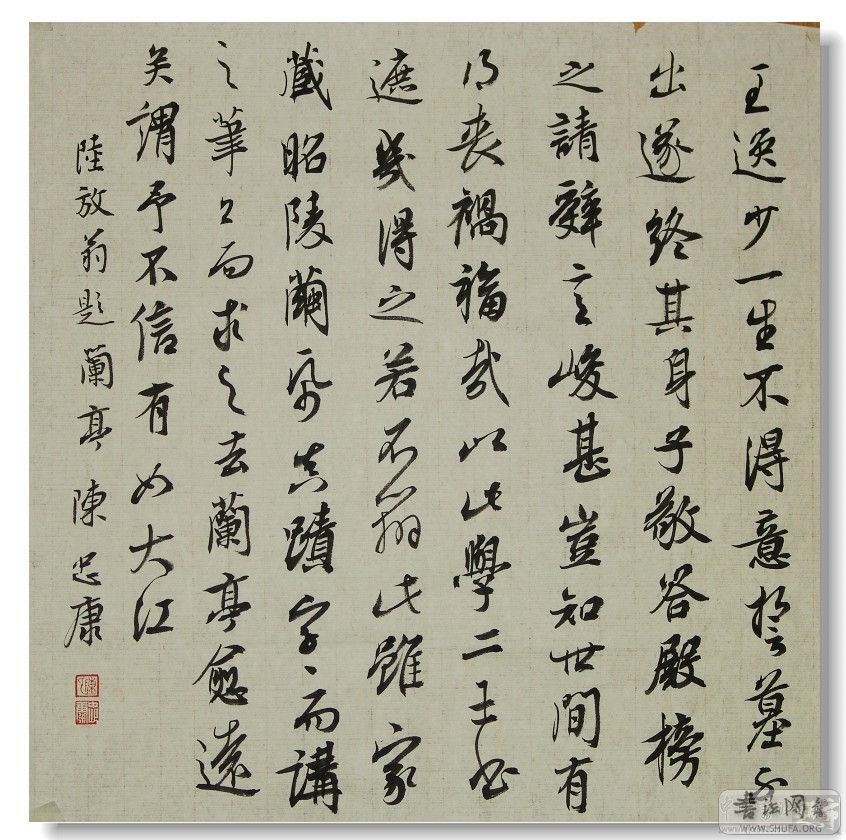 王逸少一生不得意誓墓不
出遂終其身子敬答殿榜
之請辭言峻甚豈知世間有
得喪禍福哉以此學二王書
遮幾得之若不辨此雖家
藏昭陵繭帋真蹟字〻而講
之筆〻而求之去蘭亭愈遠
矣謂予不信有如大江
陸放翁題蘭亭 陳忠康
書法网
WWW.SHUFA.ORG